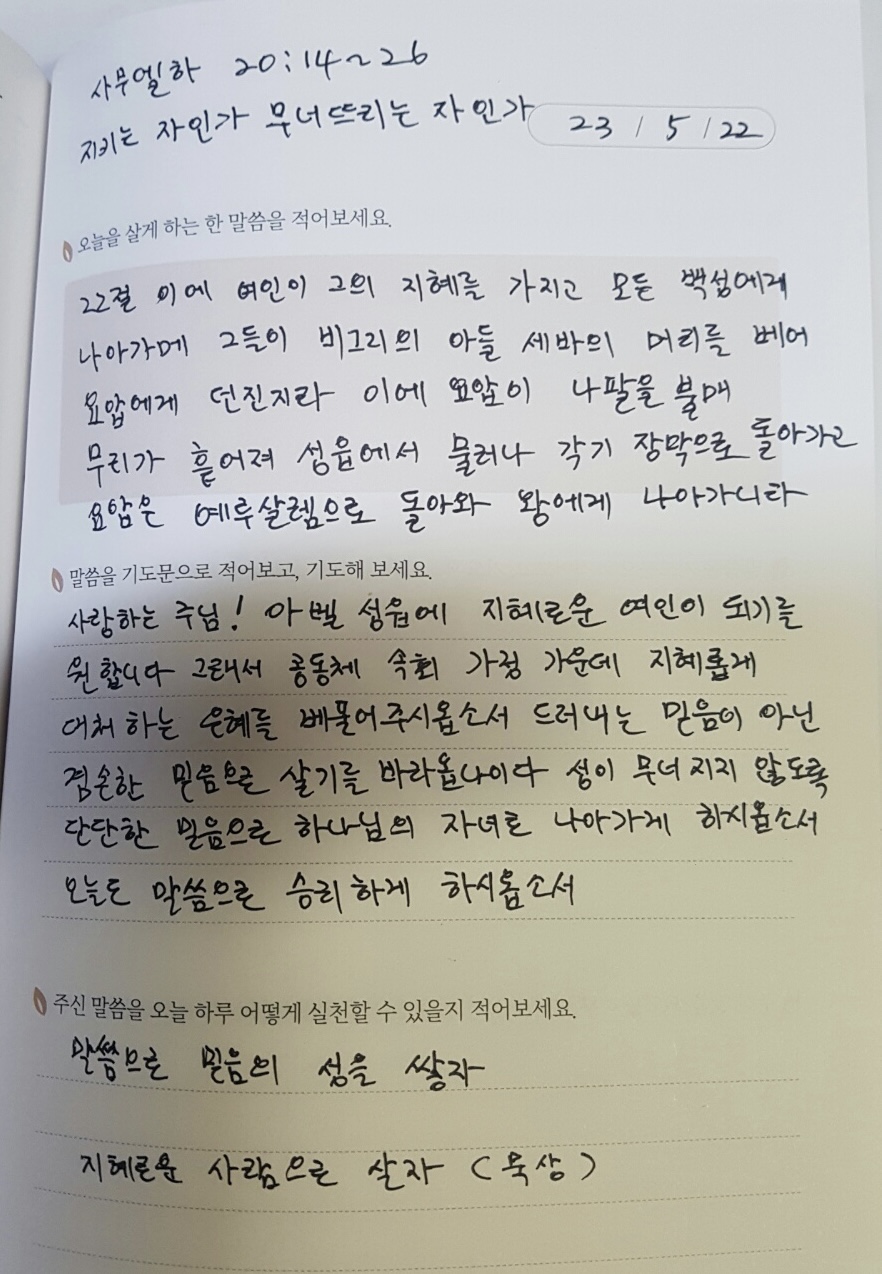 사무엘하 20:14~26
지키는 자인가 무너뜨리는 자인가
23 / 5 / 22
오늘을 살게 하는 한 말씀을 적어보세요.
22절 이에 여인이 그의 지혜를 가지고 모든 백성에게
나아가메 그들이 비그리의 아들 세바의 머리를 베어
요압에게 던진지라 이에 요압이 나팔을 불매
무리가 흩어져 성읍에서 물러나 각기 장막으로 돌아가고
요압은 예루살렘으로 돌아와 왕에게 나아가니라
말씀을 기도문으로 적어보고, 기도해 보세요.
사랑하는 주님! 아벨 성읍에 지혜로운 여인이 되기를
원합니다 그래서 공동체 속회 가정 가운데 지혜롭게
대처하는 은혜를 베풀어주시옵소서 드러내는 믿음이 아닌
겸손한 믿음으로 살기를 바라옵나이다 성이 무너지지 않도록
단단한 믿음으로 하나님의 자녀로 나아가게 하시옵소서
오늘도 말씀으로 승리하게 하시옵소서
주신 말씀을 오늘 하루 어떻게 실천할 수 있을지 적어보세요.
말씀으로 믿음의 성을 쌓자
지혜로운 사람으로 살자 (묵상)